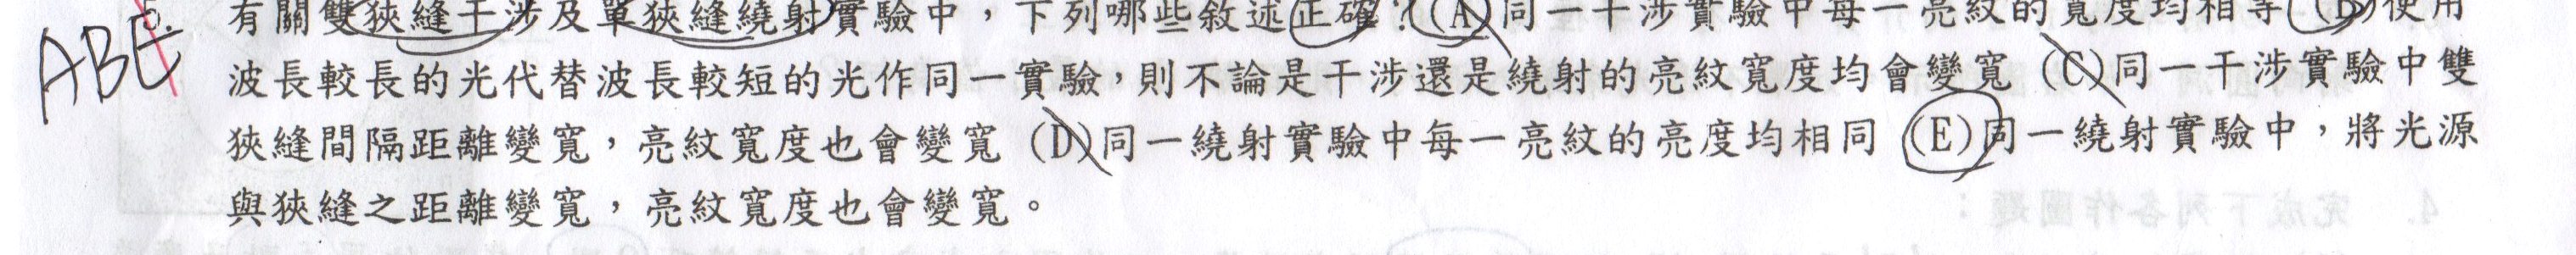 ABE
5.
有關雙狹縫干涉及單狹縫繞射實驗中，下列哪些敘述正確？(A)同一干涉實驗中每一亮紋的寬度均相等(B)使用
波長較長的光代替波長較短的光作同一實驗，則不論是干涉還是繞射的亮紋寬度均會變寬 (C)同一干涉實驗中雙
狹縫間隔距離變寬，亮紋寬度也會變寬 (D)同一繞射實驗中每一亮紋的亮度均相同 (E)同一繞射實驗中，將光源
與狹縫之距離變寬，亮紋寬度也會變寬。
4. 完成下列各作圖題：